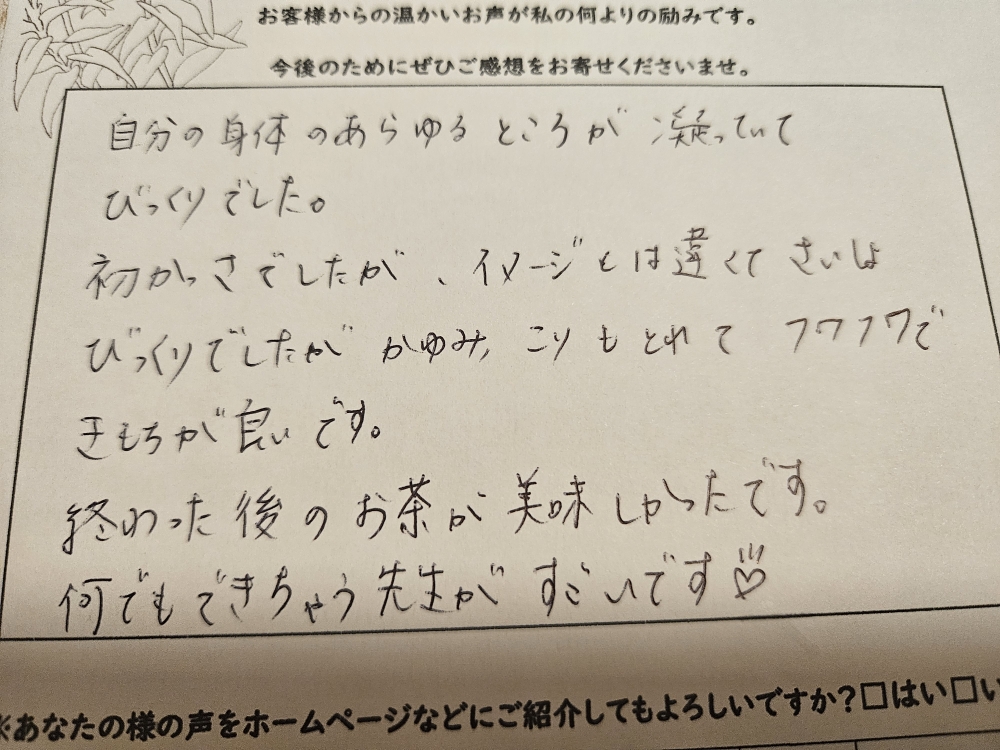 お客様からの温かいお声が私の何よりの励みです。
今後のためにぜひご感想をお寄せくださいませ。
自分の身体のあらゆるところが凝っていて
びっくりでした。
初かっさでしたが、イメージとは違くてさいしょ
びっくりでしたがかゆみ,こりもとれてフワフワで
きもちが良いです。
終わった後のお茶が美味しかったです。
何でもできちゃう先生がすごいです♡
※あなたの様の声をホームページなどにご紹介してもよろしいですか?□はい□い